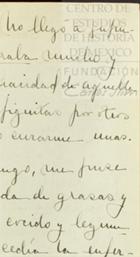 no llegó a supu-
raba mucho y
nacidad de aquella
figuitas por otros
o curarme unas.
ngo, me puse
da de grasas y
cocido y legum
cedía la enfer-
CENTRO DE
ESTUDIOS
DE HISTORIA
DE MÉXICO
FUNDACIÓN
Carlos Slim